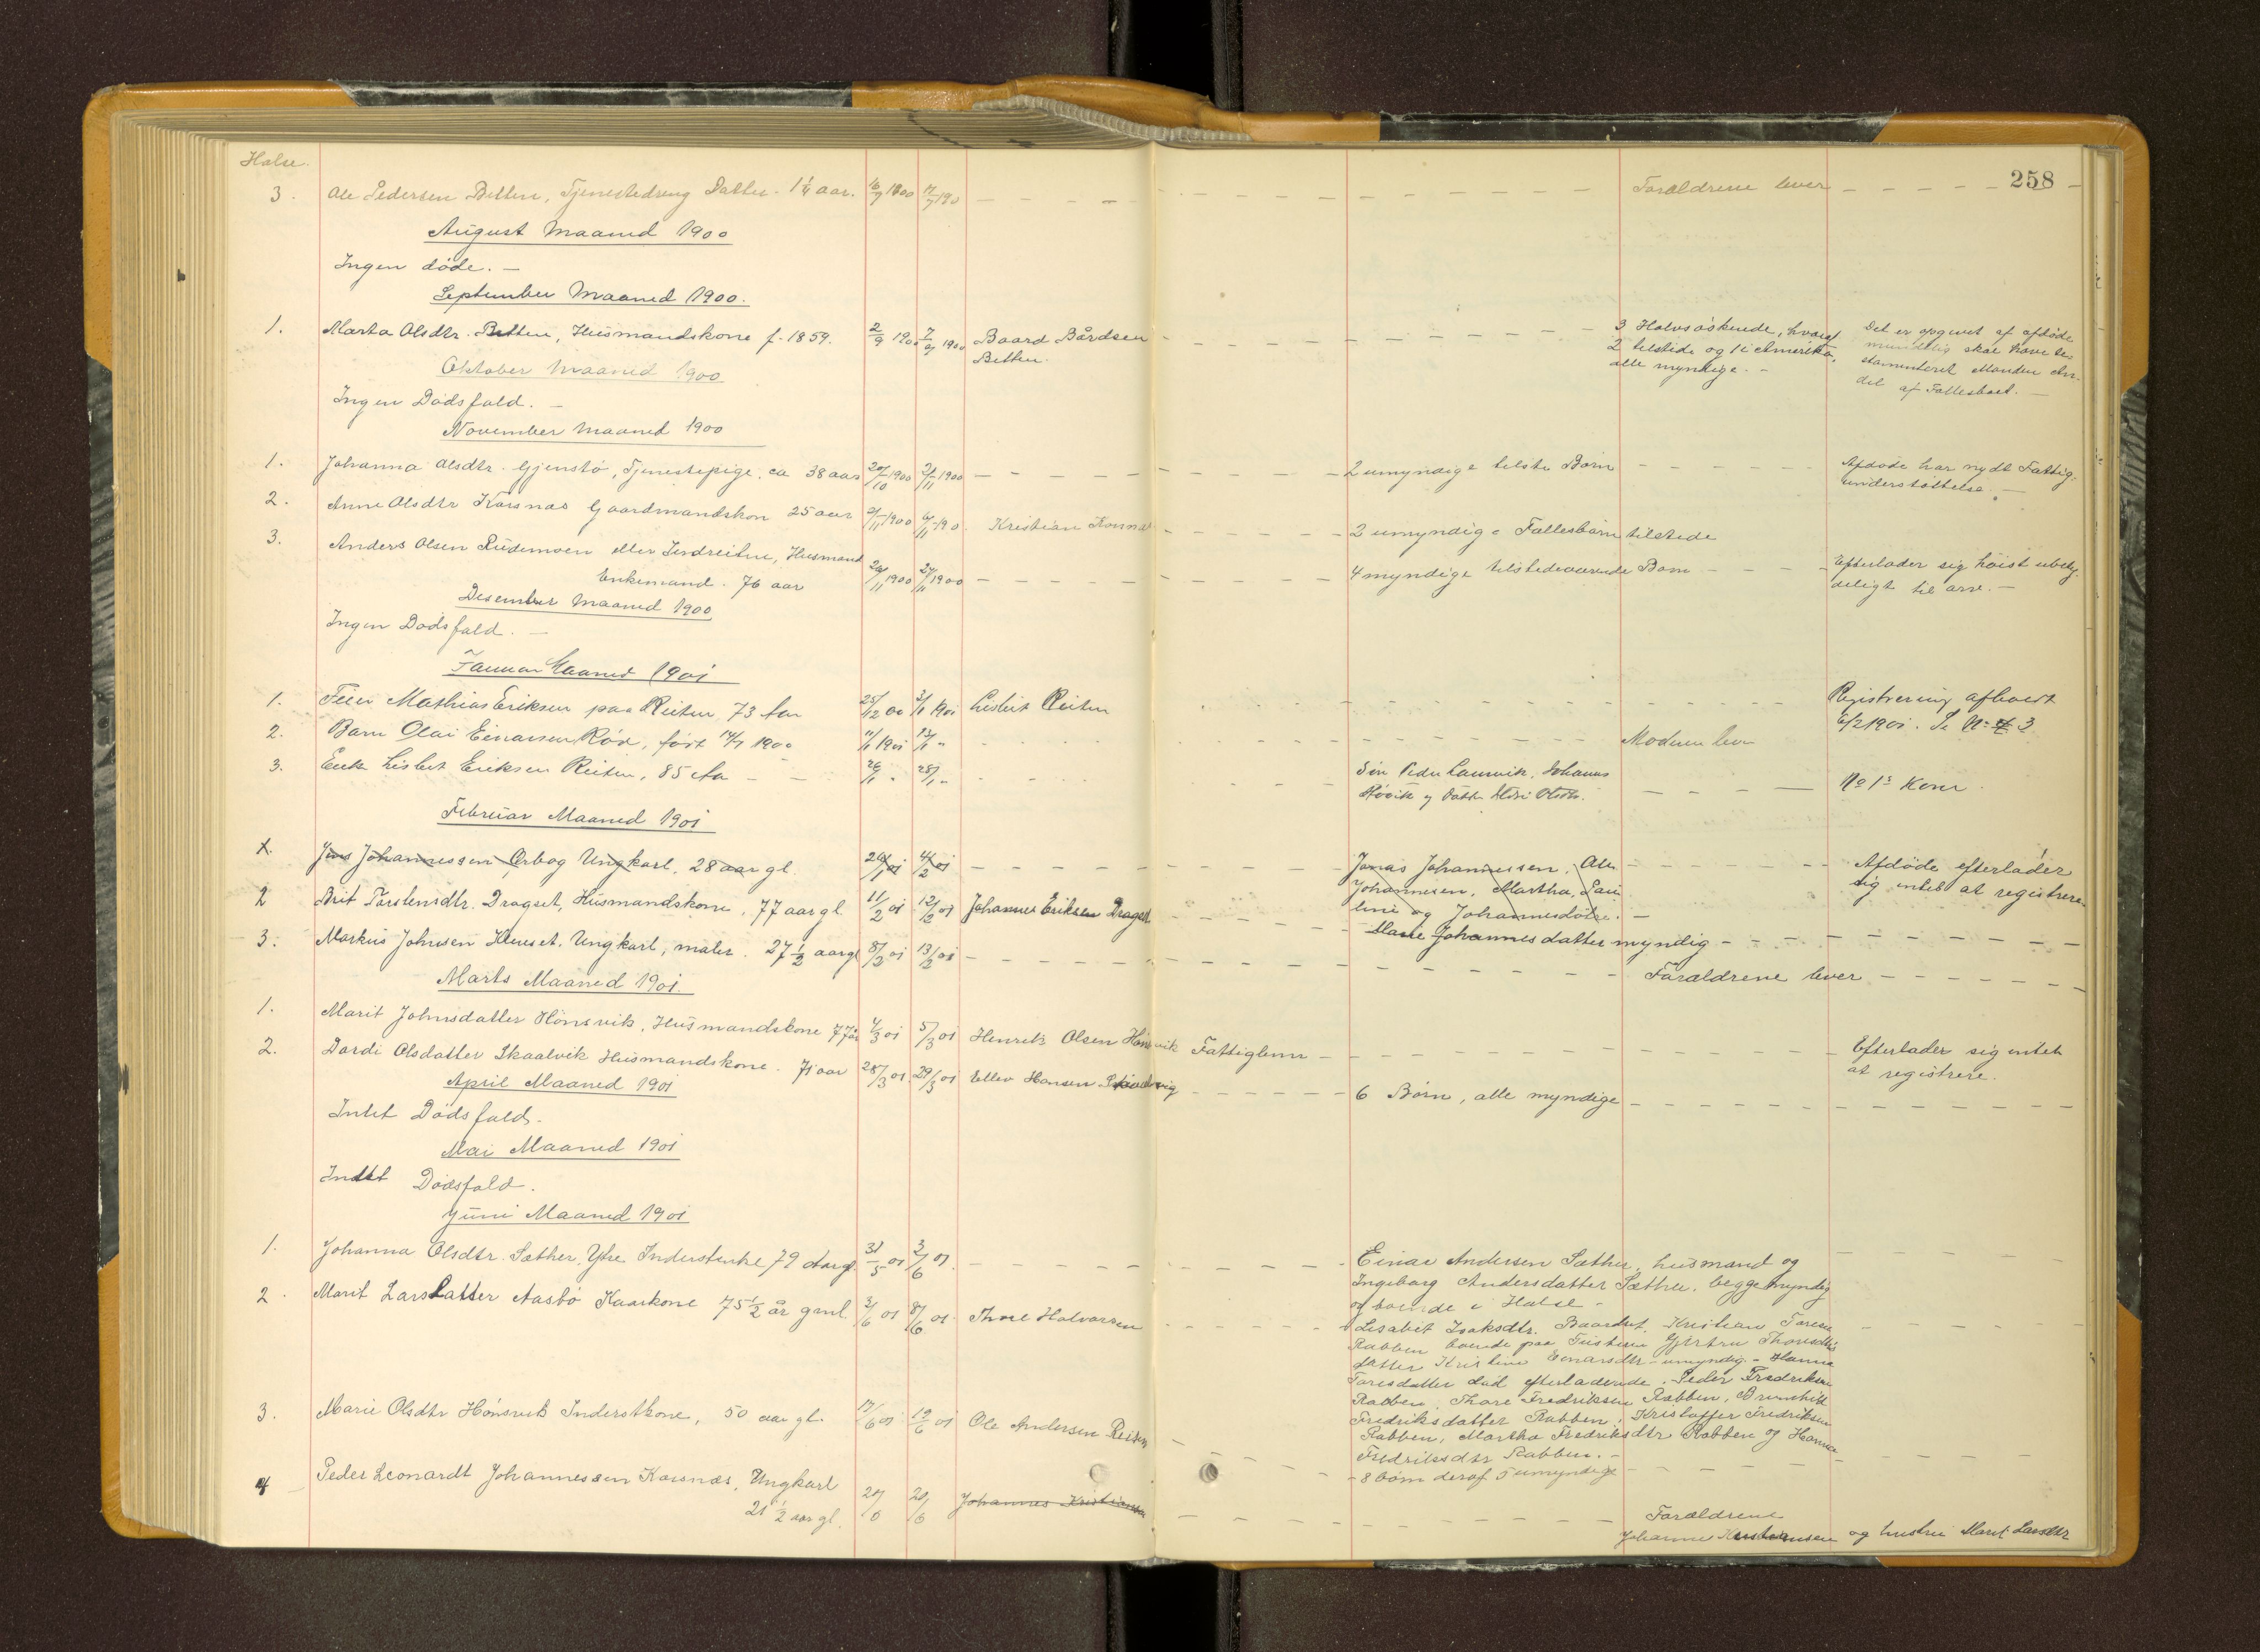 258
Halse.
3. Ole Pedersen Betten, Tjenestedreng Datter - 1 1/4 aar. 16/7 1900 17/7 190 Forældrene lever
August Maaned 1900
Ingen døde. -
September Maaned 1900.
1. Marta Olsdtr. Betten, Husmandskone f. 1859. 2/9 1900 7/9 1900 Baard Bårdsen 3 Halvsøskende, hvoraf Det er opgivet af afdøde
Betten. 2 tilstede og 1 i Amerika, mundtlig skal have te-
alle myndige. - stamenteret Manden An-
del af Fællesboet. -
Oktober Maaned 1900
Ingen Dødsfald. -
November Maaned 1900
1. Johanna Olsdtr. Gjenstø, Tjenestepige. ca 38 aar 20/10 1900 2/11 1900 2 umyndige tilste Børn Afdøde har nydt Fattig-
understøttelse. -
2. Anne Olsdtr Kårsnæs Gaardmandskon 25 aar 2/11 1900 6/11 190 Kristian 2 umyndige Fællesbørn tilstede
3. Anders Olsen eller Husmand
Enkemand. 76 aar 20/11 1900 24/11 1900 4 myndige tilstedeværende Børn Efterlader sig høist ubety-
deligt til arv. -
Desember Maaned 1900
Ingen Dødsfald. -
Januar Maaned 1901
1. Mathias Eriksen paa Reiten 73 Aar 25/12 00 3/1 1901 Lisbet Reiten Registrering afholdt
6/2 1901. Se No 3
2. Barn Olai Einarsen født 14/7 1900 11/1 1901 13/1 " Moderen lever
3. Enke Lisbet Eriksen Reiten, 85 Aar 26/1 " 28/1 " Søn Peder Johannes
og Datt. Olsdtr. No 1s Kone
Februar Maaned 1901
1. Jens Johannessen Ørbog Ungkarl, 28 aar gl. 26/1 01 4/2 01 Jonas Johannessen, Ole Afdøde efterlader
Johannesen, Martha, Pau- sig intet at registrere
line og Johannesdøtre. -
2 Brit Torstensdtr. Dragset, Husmandskone, 77 aar gl 11/2 01 12/2 01 Johannes Eriksen Dragset Marie Johannesdatter myndig
3. Markus Johnsen Henset, Ungkarl, maler. 27 1/2 aar gl 8/2 01 13/2 01 Forældrene lever
Marts Maaned 1901.
1. Marit Johnsdatter Hønsvik, Husmandskone 77 år 4/3 01 5/3 01 Henrik Olsen Hønsvik Fattiglem Efterlader sig intet
at registrere.
2. Dordi Olsdatter Skaalvik Husmandskone. 71 aar 28/3 01 29/3 01 Ellev Hansen 6 Børn, alle myndige
April Maaned 1901
Intet Dødsfald.
Mai Maaned 1901
Intet Dødsfald.
Juni Maaned 1901
1. Johanna Olsdtr. Sæther, Ytre Inderstenke 79 Aar gl. 31/5 01 3/6 01. Einar Andersen Sæther, husmand og
Ingeborg Andersdatter Sæther, begge myndig
og boende i Halse -
2. Marit Larsdatter Aasbø Kaarkone 75 1/2 år gaml. 3/6 01 8/6 01. Thore Halvorsen Lisabet Isaksdtr. Baardset, Kristian Toresen
Rabben boende paa Tustern Gjertru Thoresdtrs
datter Kristine Einarsdtr - umyndig. - Hanna
Toresdatter død efterladende. Peder Fredriksen
Rabben, Thore Fredriksen Rabben, Brynhild
Fredriksdatter Rabben, Kristoffer Fredriksen
Rabben, Martha Fredriksdtr Rabben og Hanna
Fredriksdtr Rabben. -
3. Marie Olsdtr Hønsvik Inderstkone, 50 aar gl. 17/6 01 19/6 01 Ole Andersen Reiten 8 børn deraf 5 umyndige
4 Peder Leonardt Johannessen Korsnæs, Ungkarl
21 1/2 aar gl. 20/6 20/6 Johannes Kristiansen Forældrene
Johannes Kristiansen og hustru Marit Larsdtr